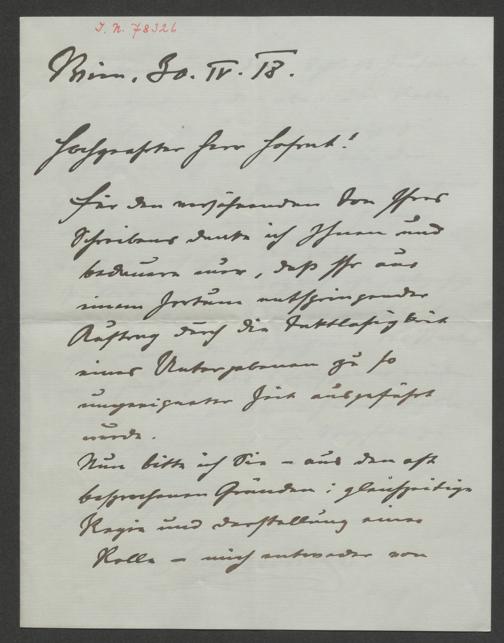 J. N. 78326
Wien, 30. IV. 18.
Hochgeehrter Herr Hofrat!
Für den versöhnenden Ton Ihres
Schreibens danke ich Ihnen und
bedauere nur, daß Ihr aus
einem Irrtum entspringender
Auftrag durch die Taktlosigkeit
eines Untergebenen zu so
ungeeigneter Zeit ausgeführt
wurde.
Nun bitte ich Sie – aus den oft
besprochenen Gründen: gleichzeitige
Regie und Darstellung einer
Rolle – mich entweder von